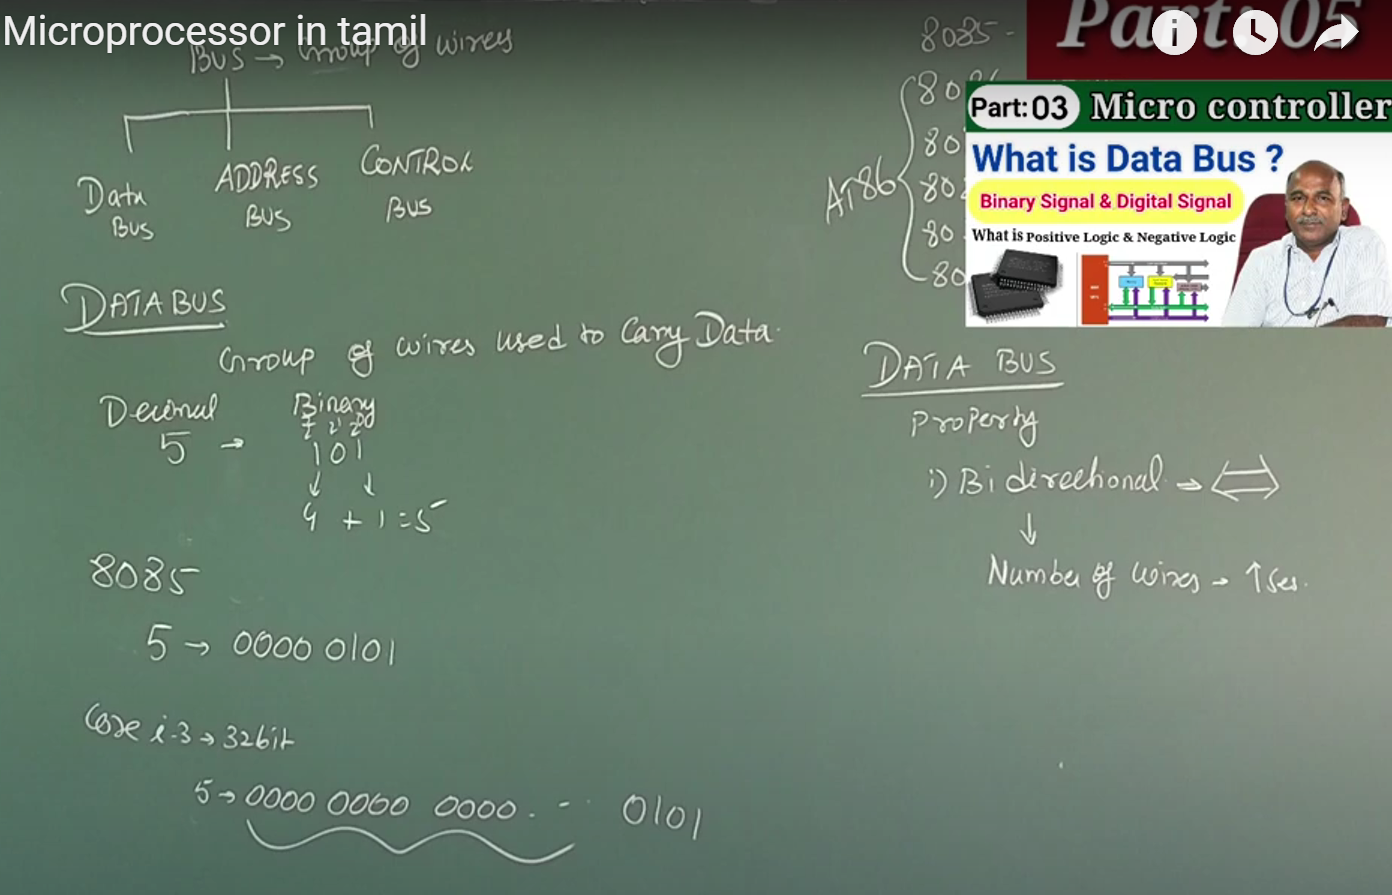 Microprocessor in tamil
BUS → Group of wires
Data BUS
ADDRESS BUS
CONTROL BUS
DATA BUS
Group of wires used to Cary Data.
Decimal Binary
2² 2¹ 2⁰
5 → 101
4 + 1 = 5
8085
5 → 0000 0101
Core i-3 → 32bit
5 → 0000 0000 0000 . - . 0101
8085 -
AT86
80
80
80
80
Part: 05
Part: 03 Micro controller
What is Data Bus ?
Binary Signal & Digital Signal
What is Positive Logic & Negative Logic
DATA BUS
Property
i) Bi directional → ⇔
↓
Number of wires → ↑ses.